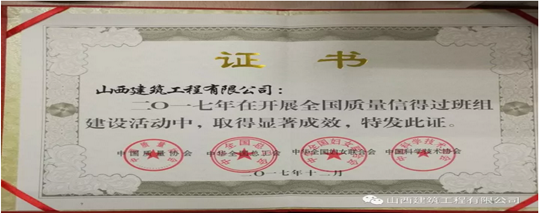 证书
山西建筑工程有限公司:
二〇一七年在开展全国质量信得过班组
建设活动中,取得显著成效,特发此证。
中国质量协会 中华全国总工会 中华全国妇女联合会 中国科学技术协会
二〇一七年十二月
山西建筑工程有限公司